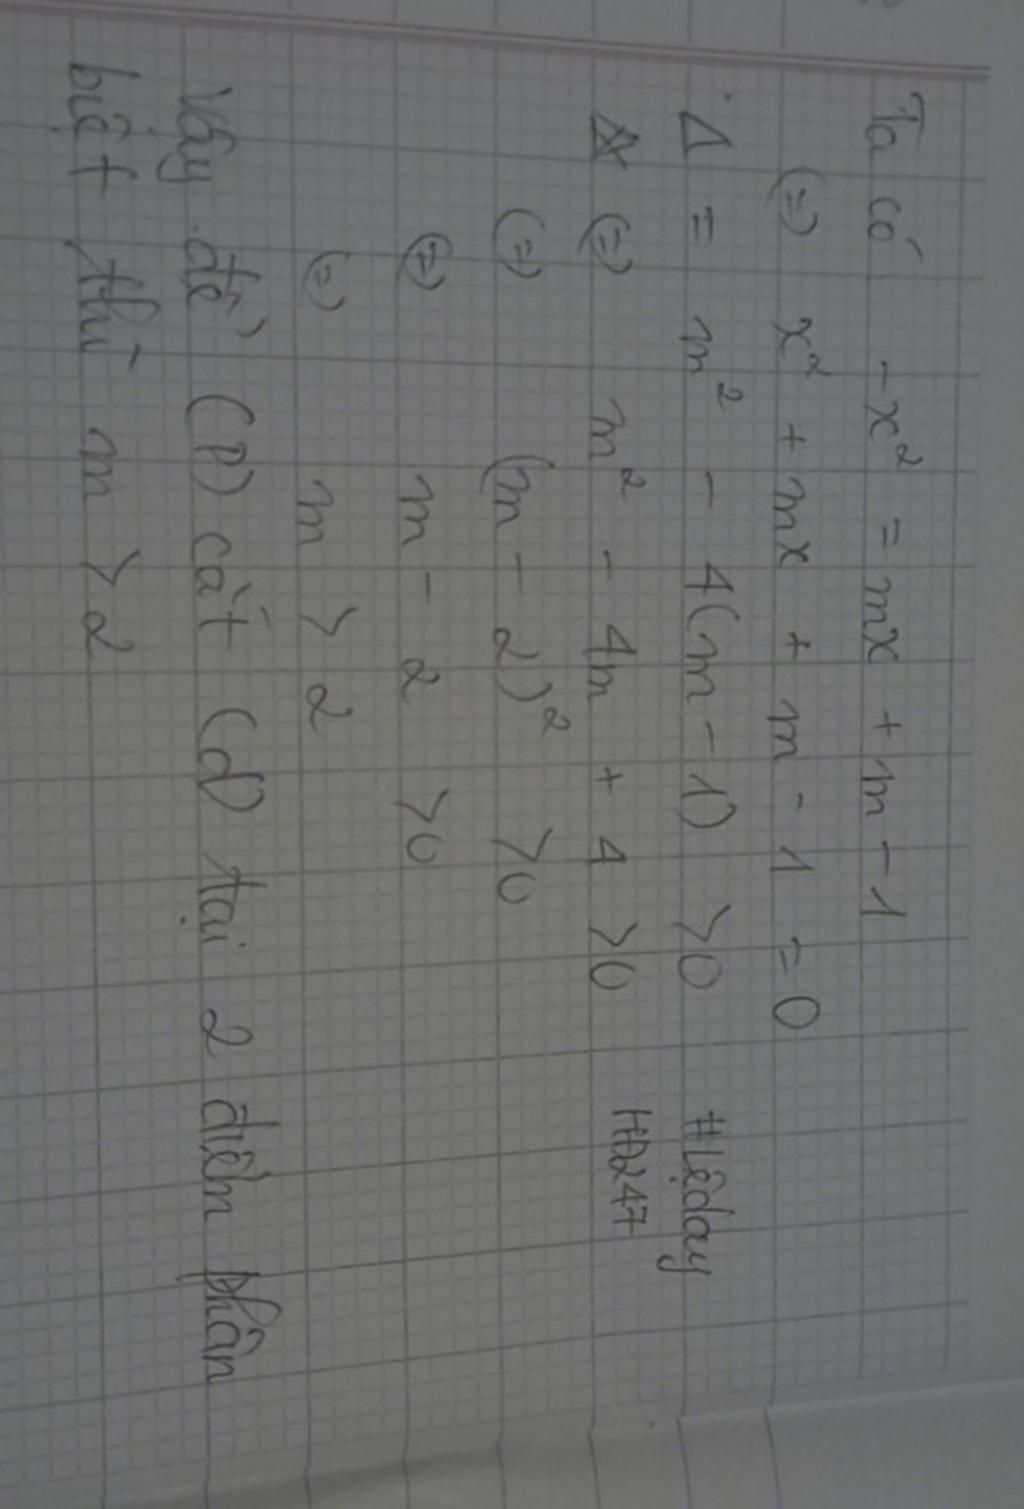 Ta có -x² = mx + m - 1
(=) x² + mx + m - 1 = 0
Δ = m² - 4(m - 1) >0 #Lệday
(=) m² - 4m + 4 >0 HĐ247
(=) (m - 2)² >0
(=) m - 2 >0
(=) m > 2
Vậy để (P) cắt (d) tại 2 điểm phân
biệt thì m > 2